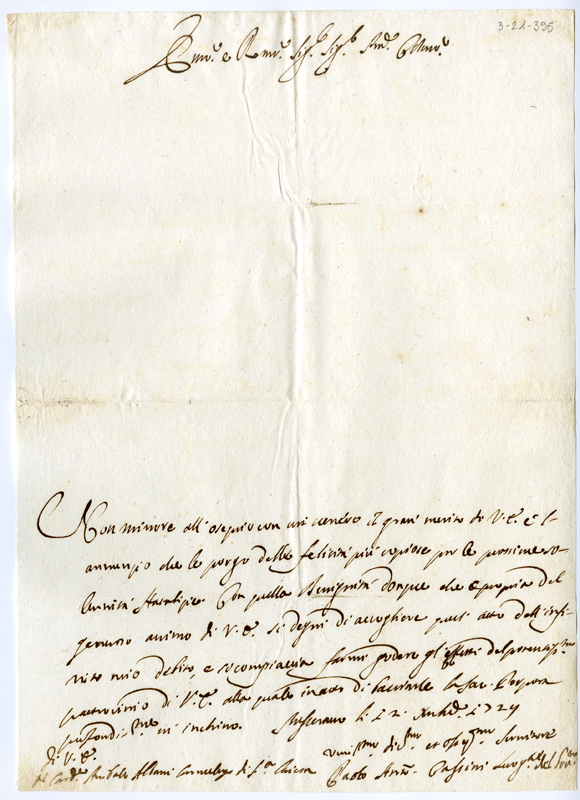 3-21-395
Em.º e Rmo. Sig.r Sig.r Pne. Colmo.
Non minore all' osequio con cui venero il gran merito di V. E. è l'
annunzio che le porgo delle felicità più copiose per le prossime so-
lennità Natalizie. Con quella Benignità donque che è propria del
generoso animo di V. E. si degni di accogliere quest' atto dell' infi-
nito mio debito, e si compiaccia farmi godere gl' effetti del potentissmo
patrocinio di V. E. alla quale in atto di baciarle la Sac. Porpora
profondissmte m' inchino.
li 12 Xmbre 1729
di V. E.
Card. Anibale Albani Camerlengo di S.ta Chiesa
Umilmo divmo et obligmo Servitore
Paolo Ant.o Passini